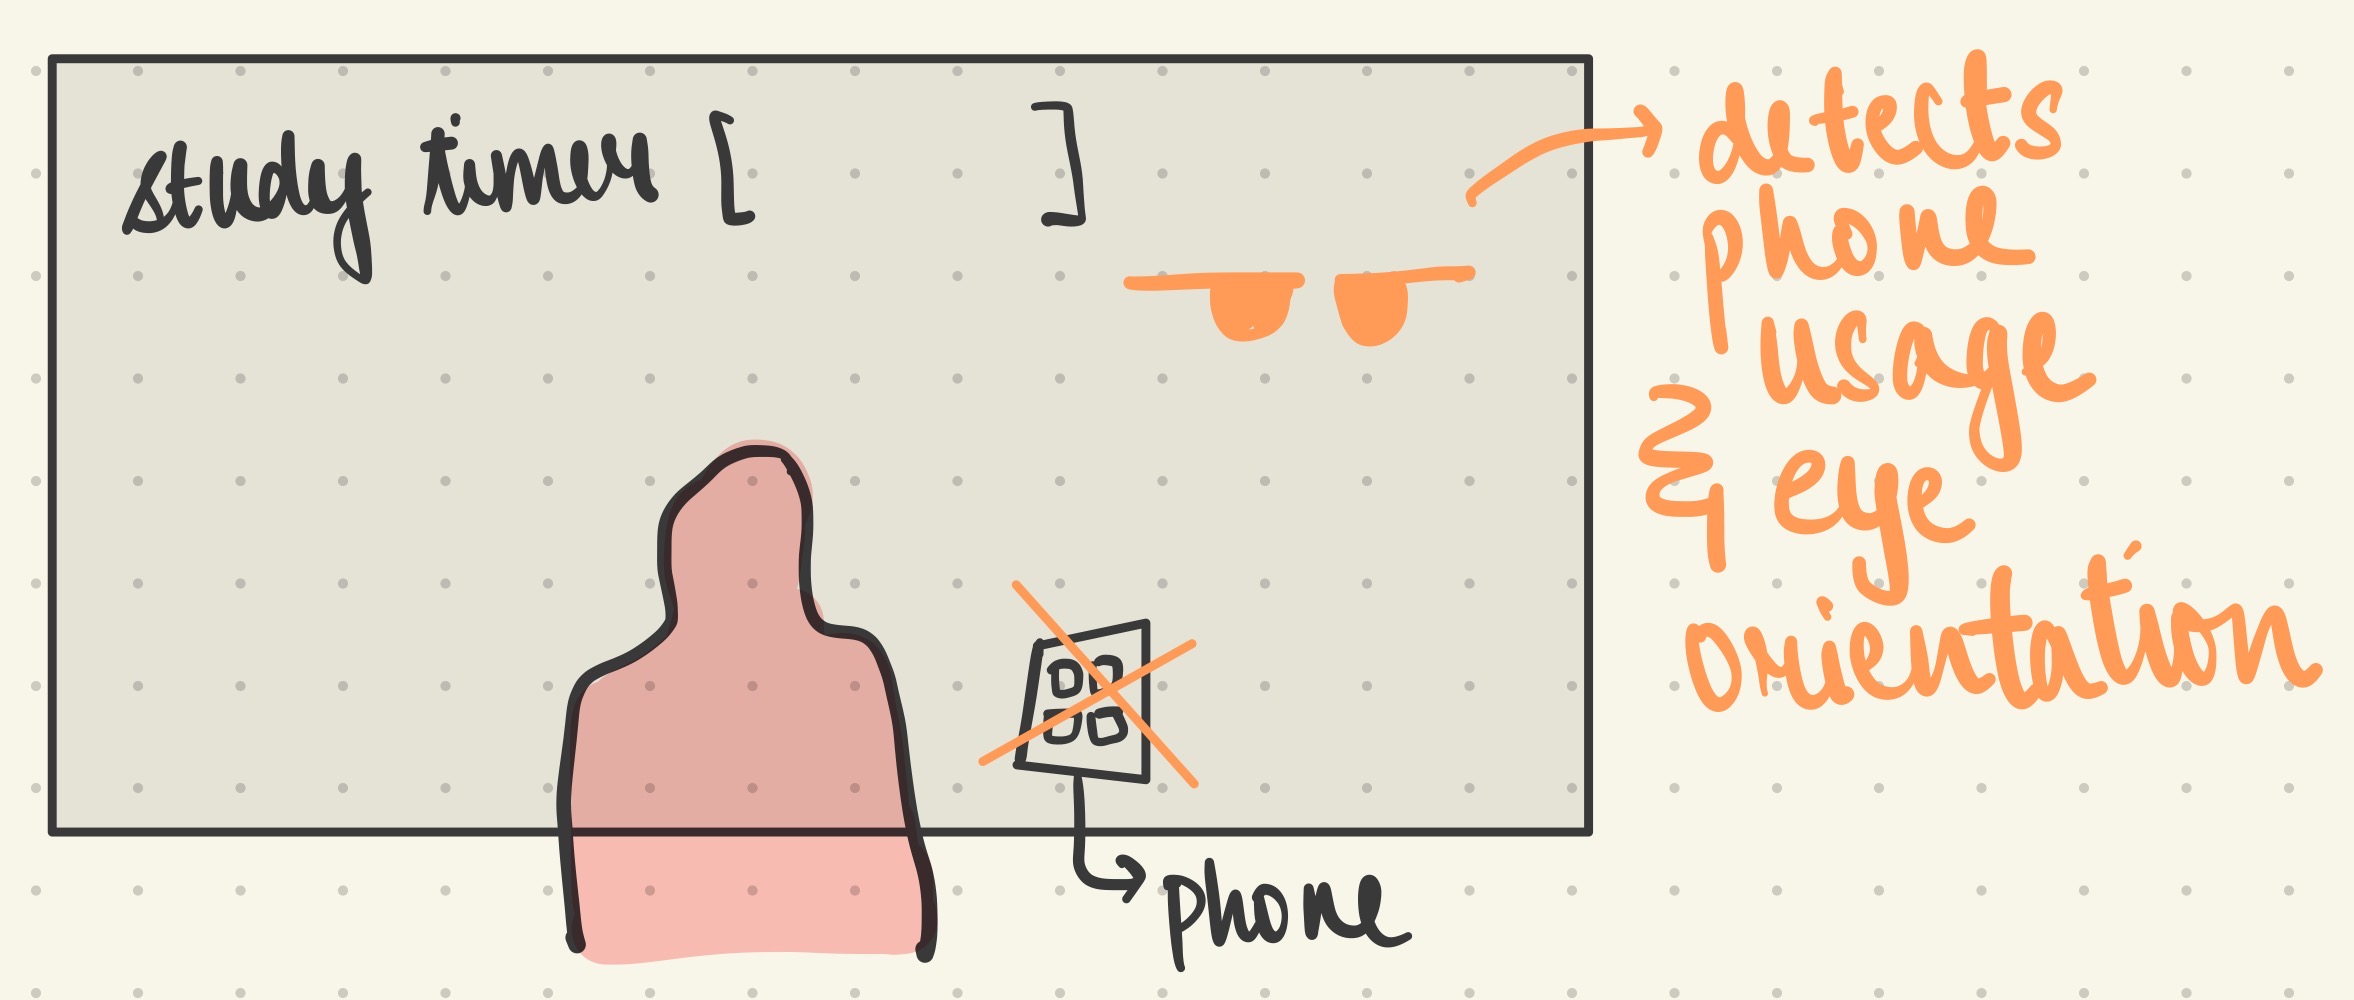 study timer [ ]
detects
phone
usage
& eye
orientation
phone